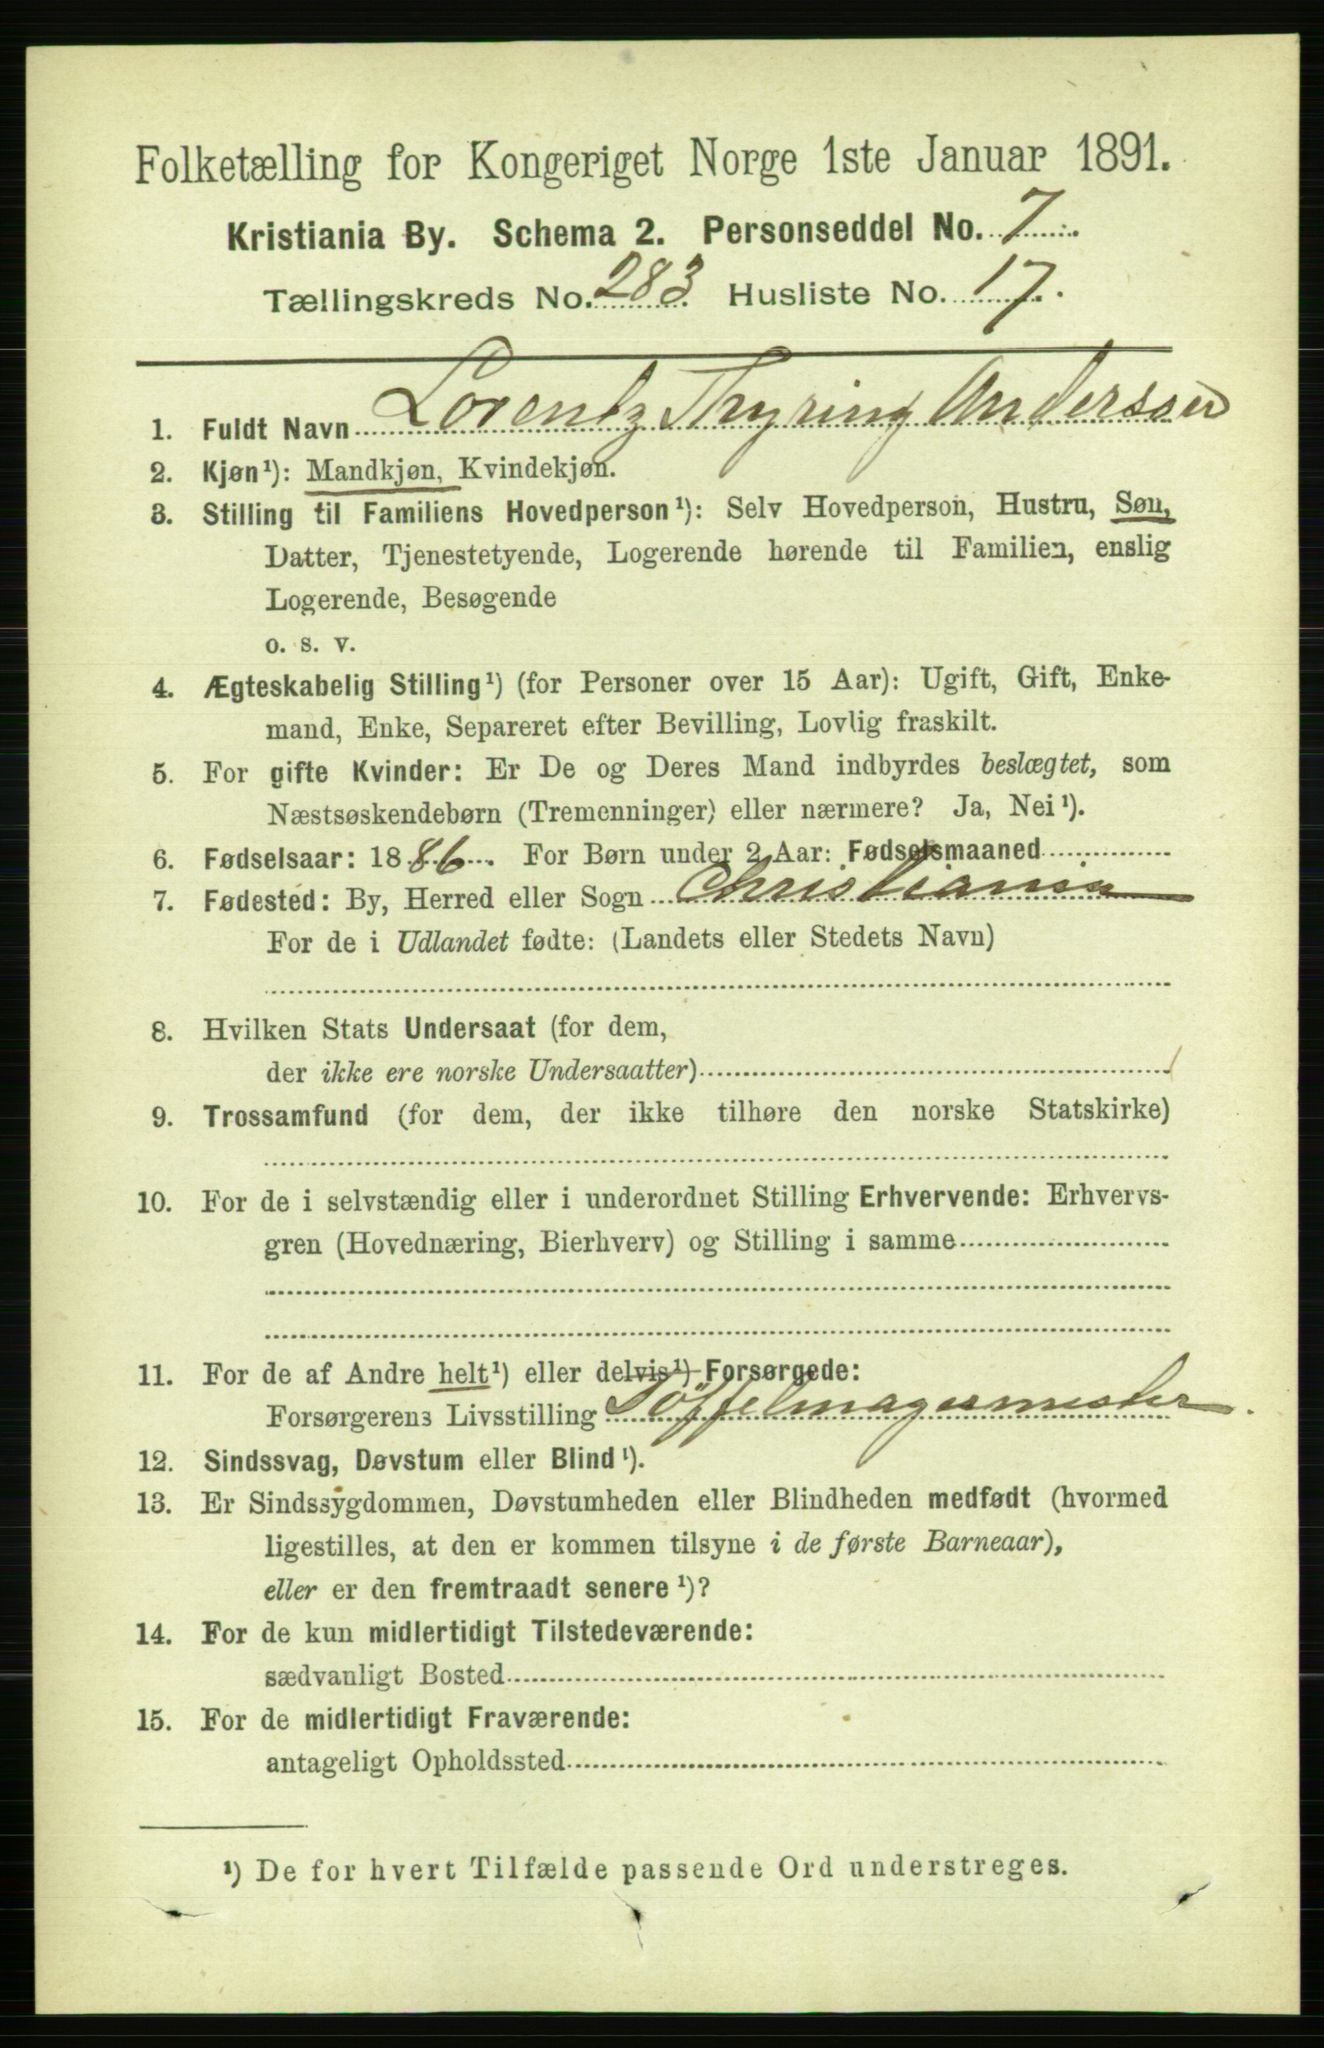 Folketælling for Kongeriget Norge 1ste Januar 1891.
Kristiania By. Schema 2. Personseddel No. 7
Tællingskreds No. 283 Husliste No. 17.
1. Fuldt Navn Lorentz Thyring Anderssen
2. Kjøn¹): Mandkjøn, Kvindekjøn.
3. Stilling til Familiens Hovedperson¹): Selv Hovedperson, Hustru, Søn,
Datter, Tjenestetyende, Logerende hørende til Familien, enslig
Logerende, Besøgende
o. s. v.
4. Ægteskabelig Stilling¹) (for Personer over 15 Aar): Ugift, Gift, Enke-
mand, Enke, Separeret efter Bevilling, Lovlig fraskilt.
5. For gifte Kvinder: Er De og Deres Mand indbyrdes beslægtet, som
Næstsøskendebørn (Tremenninger) eller nærmere? Ja, Nei¹).
6. Fødselsaar: 1886. For Børn under 2 Aar: Fødselsmaaned
7. Fødested: By, Herred eller Sogn Christiania
For de i Udlandet fødte: (Landets eller Stedets Navn)
8. Hvilken Stats Undersaat (for dem,
der ikke ere norske Undersaatter)
9. Trossamfund (for dem, der ikke tilhøre den norske Statskirke)
10. For de i selvstændig eller i underordnet Stilling Erhvervende: Erhvervs-
gren (Hovednæring, Bierhverv) og Stilling i samme
11. For de af Andre helt¹) eller delvis¹) Forsørgede:
Forsørgerens Livsstilling Töffelmagermester.
12. Sindssvag, Døvstum eller Blind¹).
13. Er Sindssygdommen, Døvstumheden eller Blindheden medfødt (hvormed
ligestilles, at den er kommen tilsyne i de første Barneaar),
eller er den fremtraadt senere¹)?
14. For de kun midlertidigt Tilstedeværende:
sædvanligt Bosted
15. For de midlertidigt Fraværende:
antageligt Opholdssted
¹) De for hvert Tilfælde passende Ord understreges.